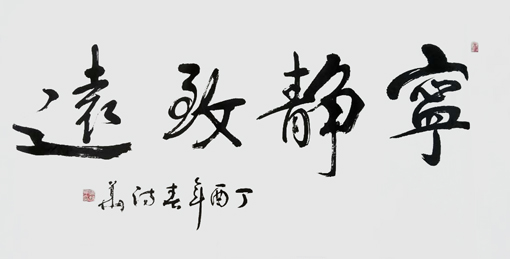 寧靜致遠
丁酉年春